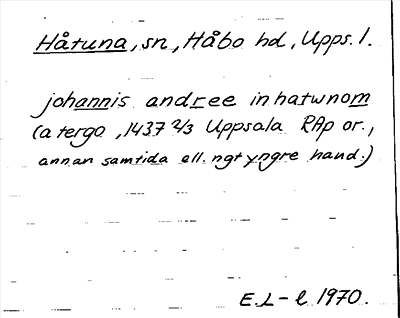 Håtuna, sn, Håbo hd, Upps. l.
johannis andree in hatwnom
(a tergo, 1437 2/3 Uppsala RAp or.,
annan samtida ell. ngt yngre hand.)
E. L-l 1970.